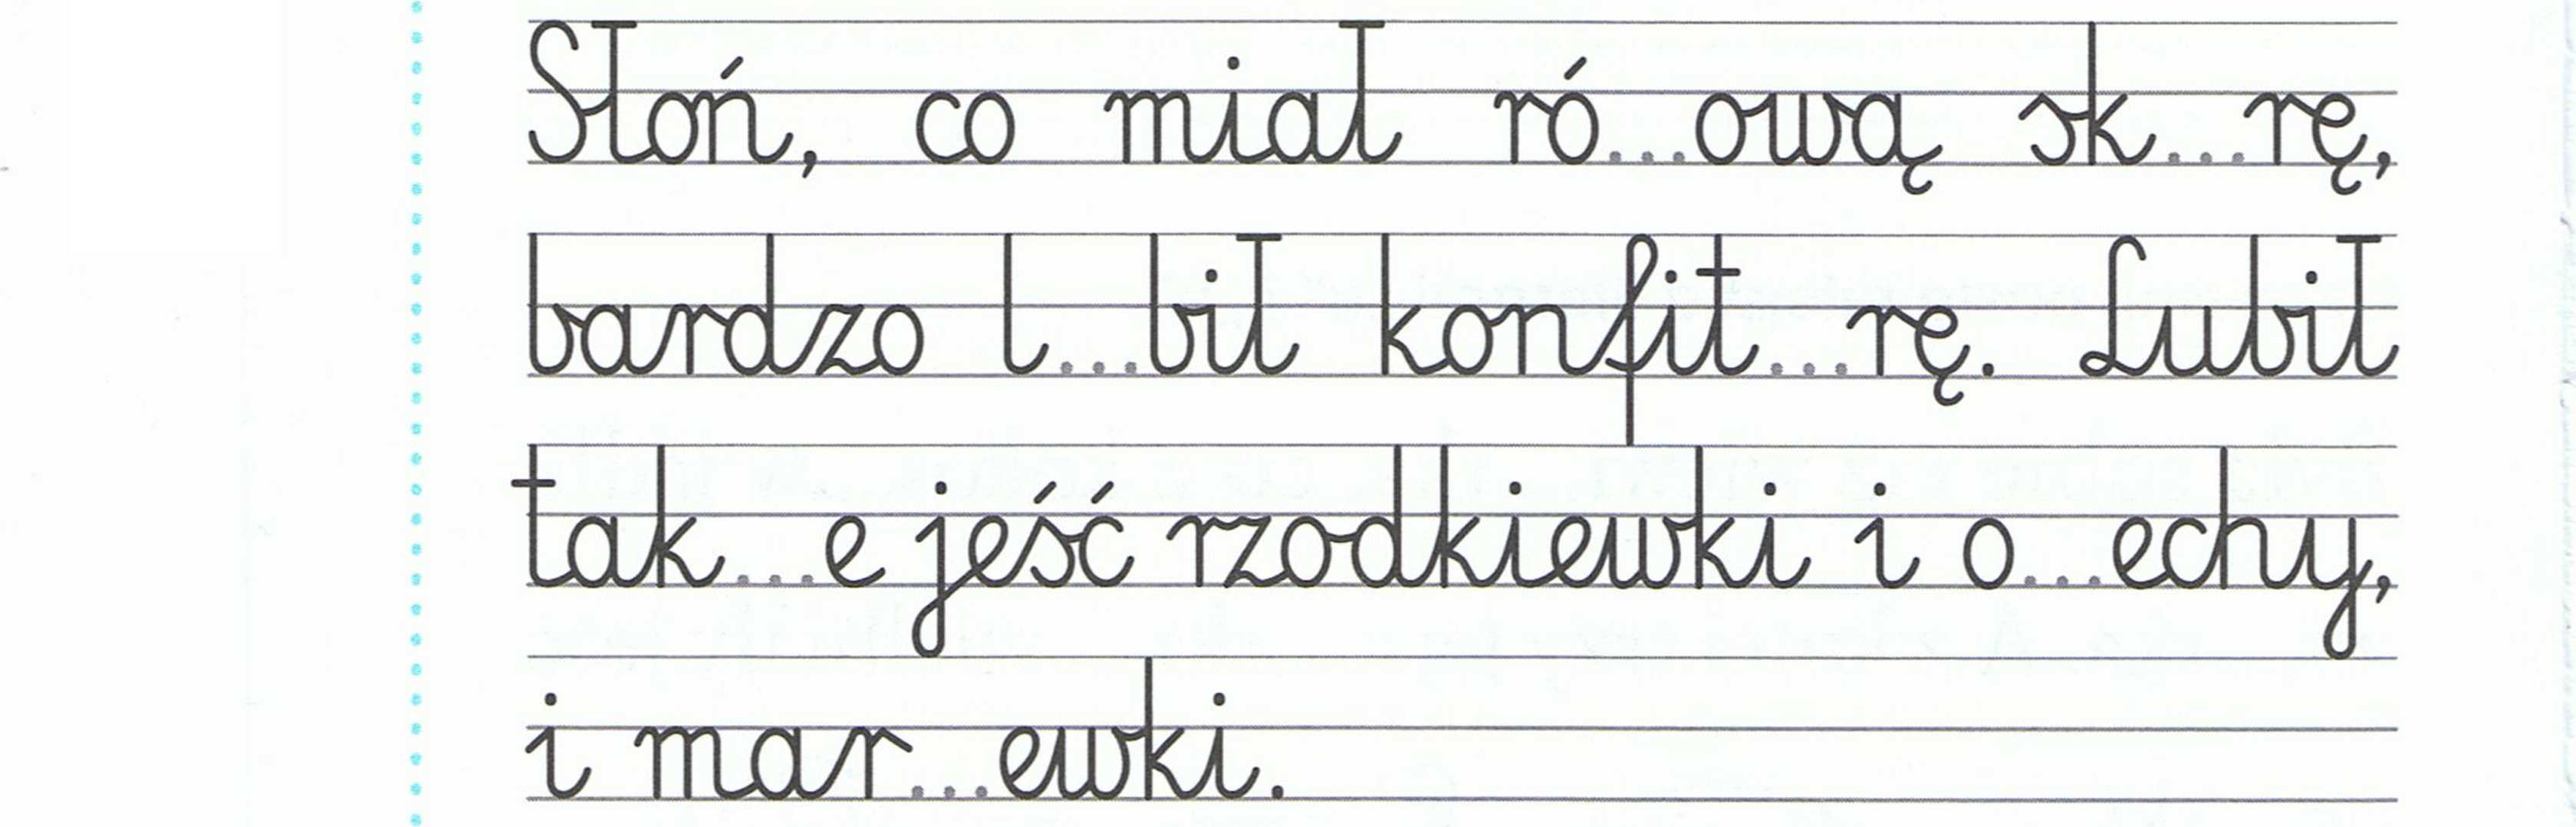 Słoń, co miał ró...ową sk...rę,
bardzo l...bił konfit...rę. Lubił
tak...e jeść rzodkiewki i o...echy,
i mar...ewki.